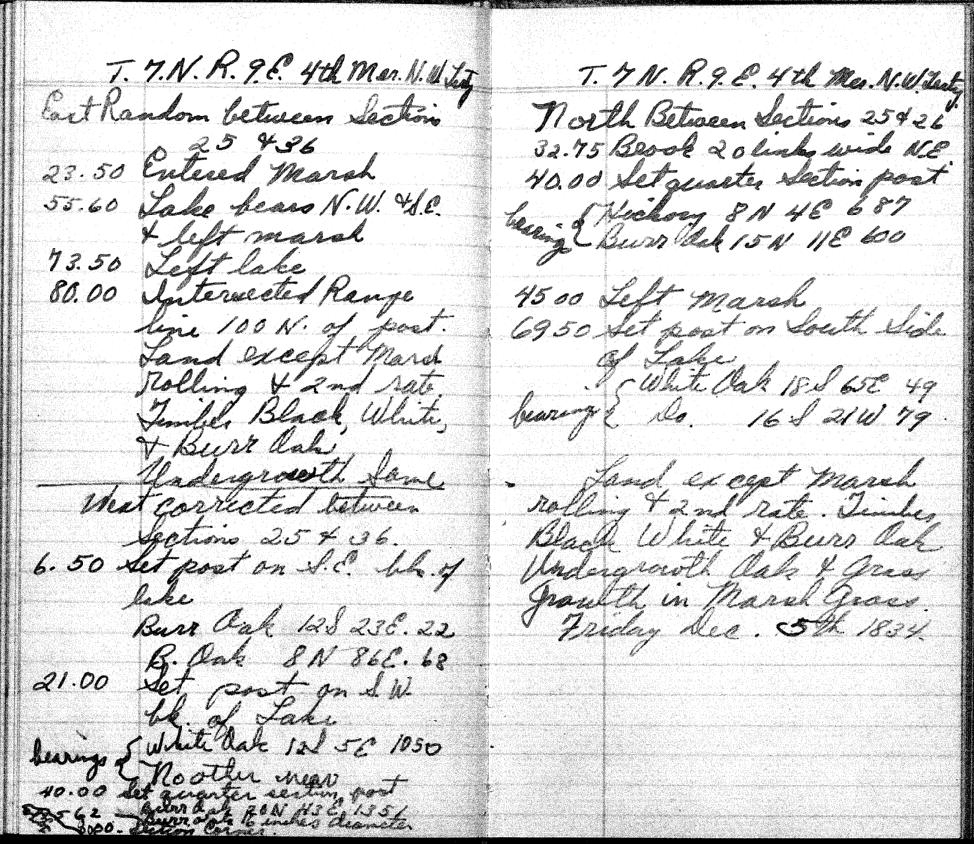 T. 7. N. R. 9. E. 4th Mer. N. W. Terty
East Random between Sections
25 & 36
23.50 Entered Marsh
55.60 Lake bears N.W. & S.E.
& left marsh
73.50 Left lake
80.00 Intersected Range
line 100 N. of post.
Land except Marsh
rolling & 2nd rate
Timber Black, White,
& Burr Oak
Undergrowth Same
West corrected between
Sections 25 & 36.
6.50 Set post on S.E. bk. of
lake
Burr Oak 12S 23E. 22
B. Oak 8 N 86E. 68
21.00 Set post on S.W.
bk. of Lake
bearings { White Oak 12S 5E 1050
No other near
40.00 Set quarter section post
Burr Oak 20N 43E 135½
Burr oak 16 inches diameter
Section Corner.
T. 7 N. R. 9 E. 4th Mer. N.W. Terty.
North Between Sections 25 & 26
32.75 Brook 20 links wide N.E.
40.00 Set quarter Section post
bearings { Hickory 8 N 4E 687
Burr Oak 15 N 11E 600
45 00 Left Marsh
69 50 Set post on South Side
of Lake
bearing { White Oak 18 S 65E 49
Do. 16 S 21 W. 79.
Land except Marsh
rolling & 2nd rate. Timber
Black White & Burr Oak
Undergrowth Oak & Grass
Growth in Marsh Grass.
Friday Dec. 5th 1834